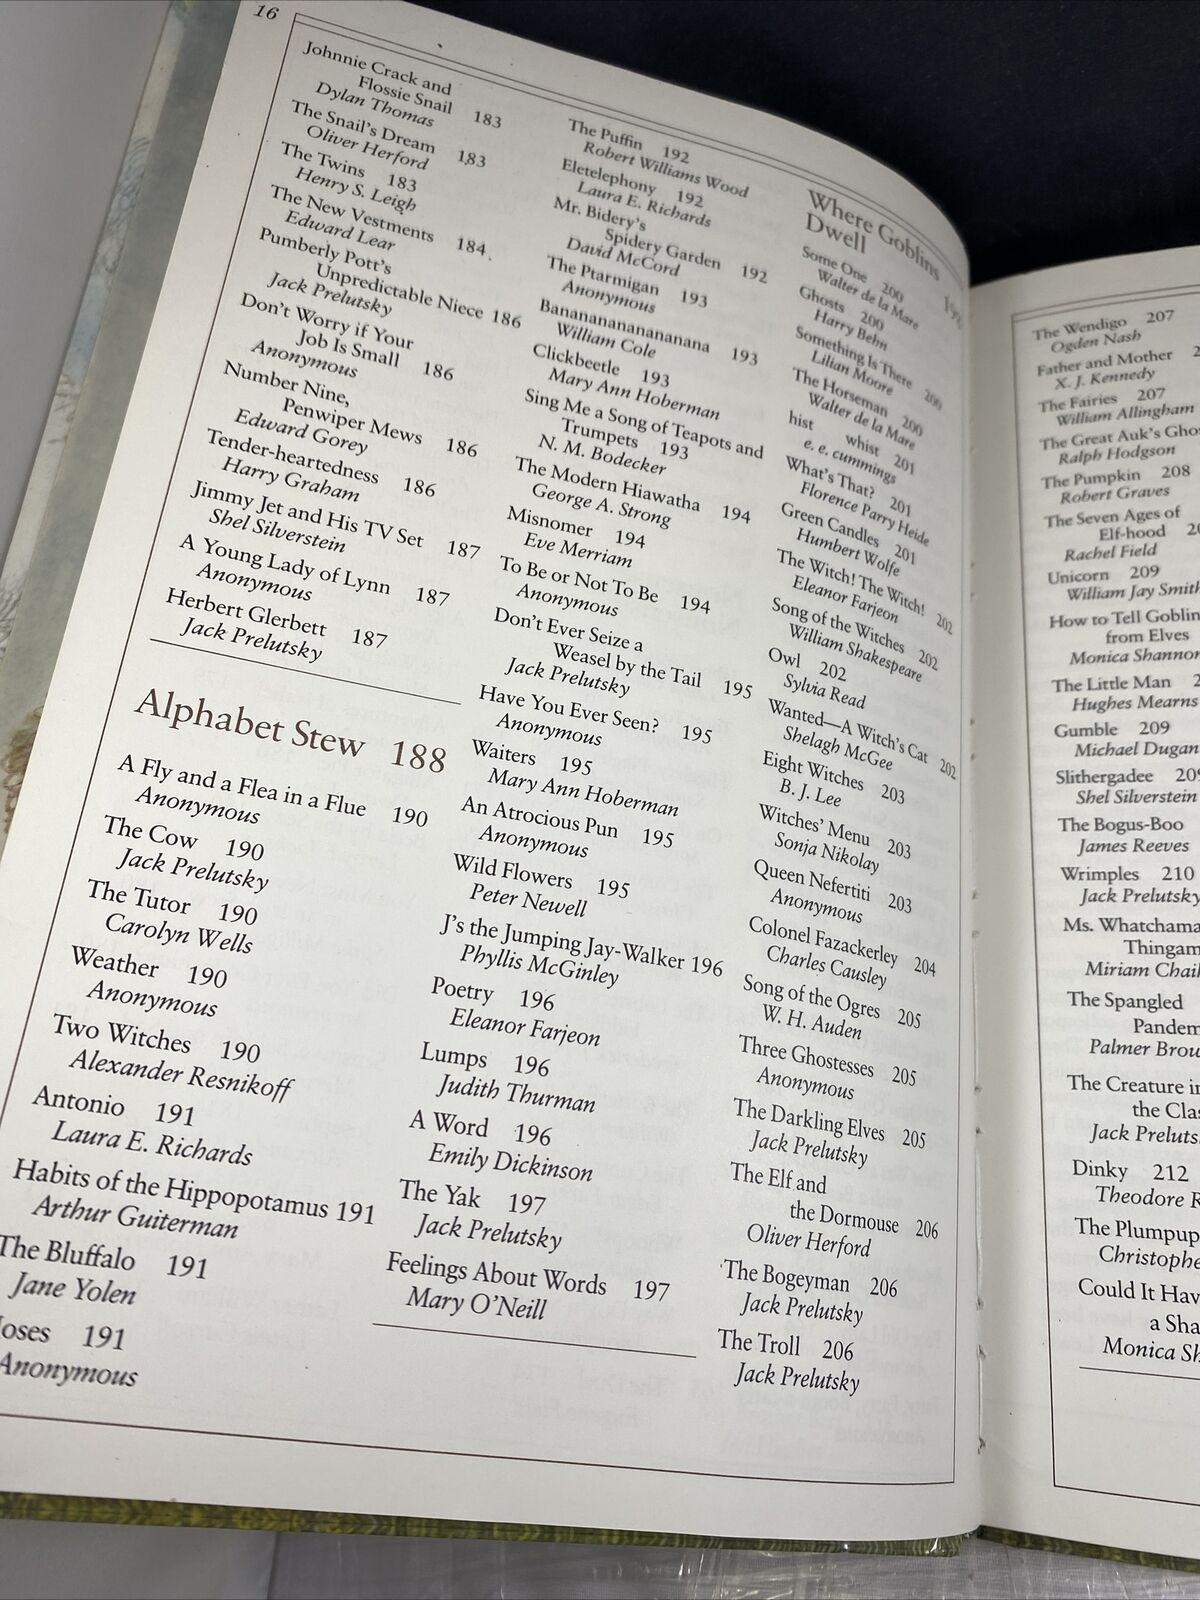 16
Johnnie Crack and
Flossie Snail 183
Dylan Thomas
The Snail's Dream 183
Oliver Herford
The Twins 183
Henry S. Leigh
The New Vestments 184
Edward Lear
Pumberly Pott's
Unpredictable Niece 186
Jack Prelutsky
Don't Worry if Your
Job Is Small 186
Anonymous
Number Nine,
Penwiper Mews 186
Edward Gorey
Tender-heartedness 186
Harry Graham
Jimmy Jet and His TV Set 187
Shel Silverstein
A Young Lady of Lynn 187
Anonymous
Herbert Glerbett 187
Jack Prelutsky
Alphabet Stew 188
A Fly and a Flea in a Flue 190
Anonymous
The Cow 190
Jack Prelutsky
The Tutor 190
Carolyn Wells
Weather 190
Anonymous
Two Witches 190
Alexander Resnikoff
Antonio 191
Laura E. Richards
Habits of the Hippopotamus 191
Arthur Guiterman
The Bluffalo 191
Jane Yolen
oses 191
Anonymous
The Puffin 192
Robert Williams Wood
Eletelephony 192
Laura E. Richards
Mr. Bidery's
Spidery Garden 192
David McCord
The Ptarmigan 193
Anonymous
Banananananananana 193
William Cole
Clickbeetle 193
Mary Ann Hoberman
Sing Me a Song of Teapots and
Trumpets 193
N. M. Bodecker
The Modern Hiawatha 194
George A. Strong
Misnomer 194
Eve Merriam
To Be or Not To Be 194
Anonymous
Don't Ever Seize a
Weasel by the Tail 195
Jack Prelutsky
Have You Ever Seen? 195
Anonymous
Waiters 195
Mary Ann Hoberman
An Atrocious Pun 195
Anonymous
Wild Flowers 195
Peter Newell
J's the Jumping Jay-Walker 196
Phyllis McGinley
Poetry 196
Eleanor Farjeon
Lumps 196
Judith Thurman
A Word 196
Emily Dickinson
The Yak 197
Jack Prelutsky
Feelings About Words 197
Mary O'Neill
Where Goblins
Dwell
Some One 200
Walter de la Mare
Ghosts 200
Harry Behn
Something Is There 200
Lilian Moore
The Horseman 200
Walter de la Mare
hist whist 201
e. e. cummings
What's That? 201
Florence Parry Heide
Green Candles 201
Humbert Wolfe
The Witch! The Witch! 202
Eleanor Farjeon
Song of the Witches 202
William Shakespeare
Owl 202
Sylvia Read
Wanted—A Witch's Cat 202
Shelagh McGee
Eight Witches 203
B. J. Lee
Witches' Menu 203
Sonja Nikolay
Queen Nefertiti 203
Anonymous
Colonel Fazackerley 204
Charles Causley
Song of the Ogres 205
W. H. Auden
Three Ghostesses 205
Anonymous
The Darkling Elves 205
Jack Prelutsky
The Elf and
the Dormouse 206
Oliver Herford
The Bogeyman 206
Jack Prelutsky
The Troll 206
Jack Prelutsky
The Wendigo 207
Ogden Nash
Father and Mother 2
X. J. Kennedy
The Fairies 207
William Allingham
The Great Auk's Ghos
Ralph Hodgson
The Pumpkin 208
Robert Graves
The Seven Ages of
Elf-hood 20
Rachel Field
Unicorn 209
William Jay Smith
How to Tell Goblin
from Elves
Monica Shannon
The Little Man 2
Hughes Mearns
Gumble 209
Michael Dugan
Slithergadee 209
Shel Silverstein
The Bogus-Boo
James Reeves
Wrimples 210
Jack Prelutsky
Ms. Whatchama
Thingam
Miriam Chaik
The Spangled
Pandem
Palmer Brow
The Creature in
the Clas
Jack Preluts
Dinky 212
Theodore R
The Plumpup
Christophe
Could It Hav
a Sha
Monica Sh